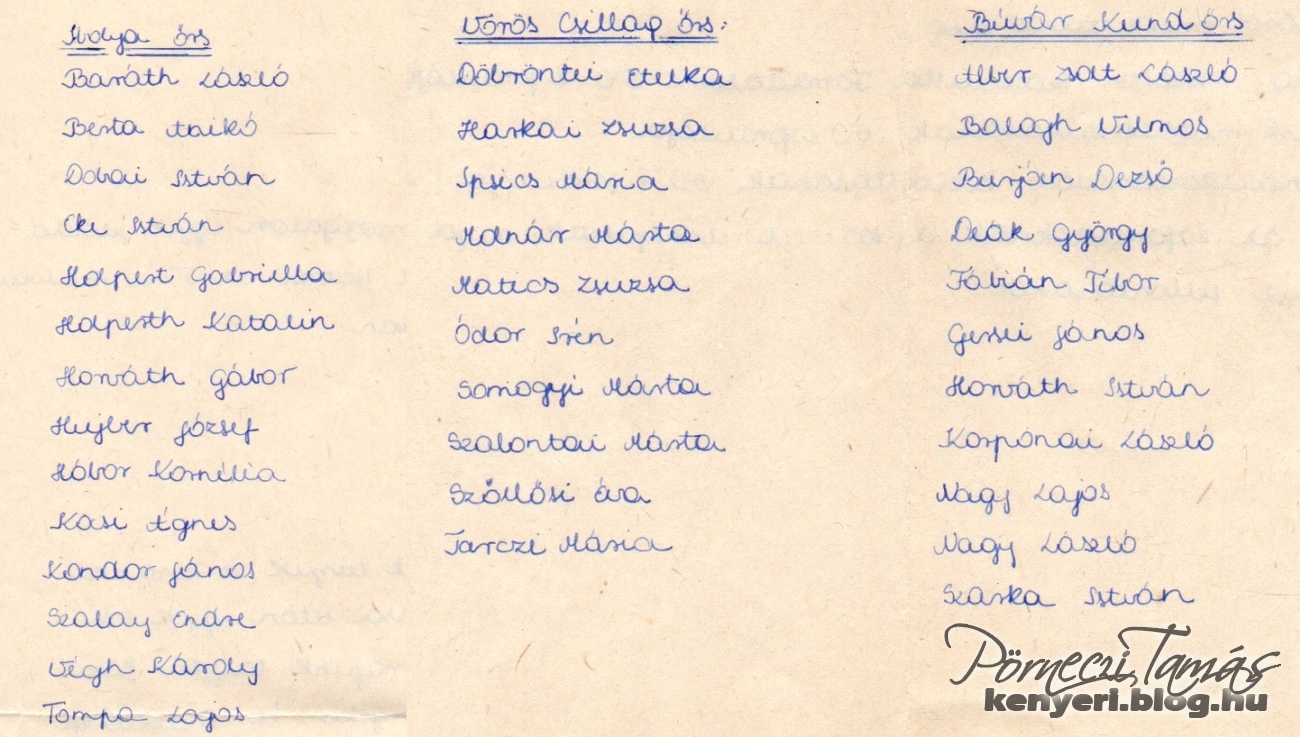 Ibolya őrs
Baráth László
Berta Anikó
Dobai István
Cki István
Holpert Gabriella
Holperth Katalin
Horváth Gábor
Hujber József
Hóbor Kornélia
Kósi Ágnes
Kondor János
Szalay Endre
Végh Károly
Tompa Lajos
Vörös Csillag őrs:
Döbröntei Etelka
Harkai Zsuzsa
Ipsics Mária
Molnár Márta
Matics Zsuzsa
Ódor Irén
Somogyi Márta
Szalontai Márta
Szőllősi Éva
Tarczi Mária
Búvár Kund őrs
Alber Zsolt László
Balogh Vilmos
Burján Dezső
Deák György
Fábián Tibor
Gersei János
Horváth István
Korponai László
Nagy Lajos
Nagy László
Szarka István
Pörneczi Tamás
kenyeri.blog.hu